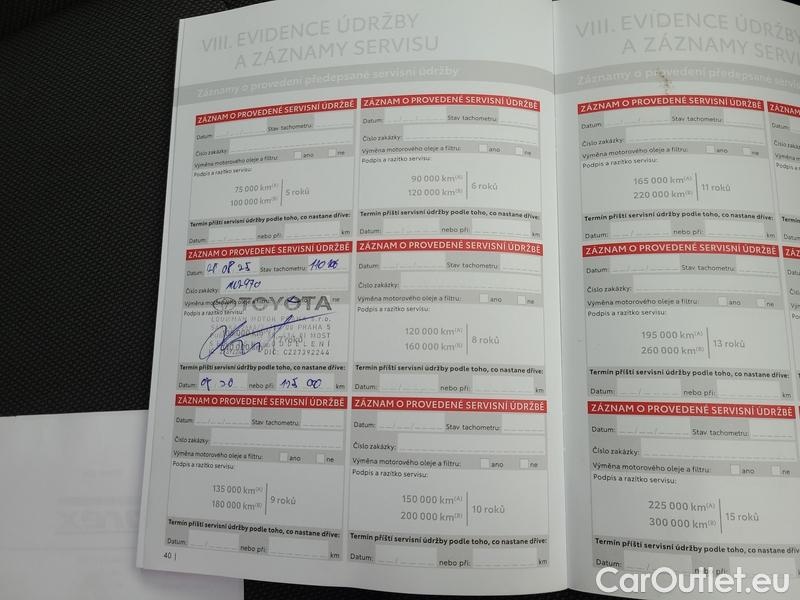 VIII. EVIDENCE ÚDRŽBY
A ZÁZNAMY SERVISU
Záznamy o provedení předepsané servisní údržby
ZÁZNAM O PROVEDENÉ SERVISNÍ ÚDRŽBĚ
Datum: Stav tachometru:
Číslo zakázky:
Výměna motorového oleje a filtru: ano ne
Podpis a razítko servisu:
75 000 km(A)
100 000 km(B)
5 roků
Termín příští servisní údržby podle toho, co nastane dříve:
Datum: nebo při: km
ZÁZNAM O PROVEDENÉ SERVISNÍ ÚDRŽBĚ
Datum: Stav tachometru:
Číslo zakázky:
Výměna motorového oleje a filtru: ano ne
Podpis a razítko servisu:
90 000 km(A)
120 000 km(B)
6 roků
Termín příští servisní údržby podle toho, co nastane dříve:
Datum: nebo při: km
ZÁZNAM O PROVEDENÉ SERVISNÍ ÚDRŽBĚ
Datum: 08 25 Stav tachometru:
Číslo zakázky:
TOYOTA
PRAHA 5
MOST
DIČ: CZ27392244
Termín příští servisní údržby podle toho, co nastane dříve:
Datum: nebo při: km
ZÁZNAM O PROVEDENÉ SERVISNÍ ÚDRŽBĚ
Datum: Stav tachometru:
Číslo zakázky:
Výměna motorového oleje a filtru: ano ne
Podpis a razítko servisu:
120 000 km(A)
160 000 km(B)
8 roků
Termín příští servisní údržby podle toho, co nastane dříve:
Datum: nebo při: km
ZÁZNAM O PROVEDENÉ SERVISNÍ ÚDRŽBĚ
Datum: Stav tachometru:
Číslo zakázky:
Výměna motorového oleje a filtru: ano ne
Podpis a razítko servisu:
135 000 km(A)
180 000 km(B)
9 roků
Termín příští servisní údržby podle toho, co nastane dříve:
Datum: nebo při: km
ZÁZNAM O PROVEDENÉ SERVISNÍ ÚDRŽBĚ
Datum: Stav tachometru:
Číslo zakázky:
Výměna motorového oleje a filtru: ano ne
Podpis a razítko servisu:
150 000 km(A)
200 000 km(B)
10 roků
Termín příští servisní údržby podle toho, co nastane dříve:
Datum: nebo při: km
40 |
VIII. EVIDENCE ÚDRŽBY
A ZÁZNAMY
Záznamy o provedení předepsané
ZÁZNAM O PROVEDENÉ SERVISNÍ ÚDRŽBĚ
Datum: Stav tachometru:
Číslo zakázky:
Výměna motorového oleje a filtru: ano ne
Podpis a razítko servisu:
165 000 km(A)
220 000 km(B)
11 roků
Termín příští servisní údržby podle toho, co nastane dříve:
Datum: nebo při: km
ZÁZNAM O PROVEDENÉ SERVISNÍ ÚDRŽBĚ
Datum: Stav tachometru:
Číslo zakázky:
Výměna motorového oleje a filtru: ano ne
Podpis a razítko servisu:
195 000 km(A)
260 000 km(B)
13 roků
Termín příští servisní údržby podle toho, co nastane dříve:
Datum: nebo při: km
ZÁZNAM O PROVEDENÉ SERVISNÍ ÚDRŽBĚ
Datum: Stav tachometru:
Číslo zakázky:
Výměna motorového oleje a filtru: ano ne
Podpis a razítko servisu:
225 000 km(A)
300 000 km(B)
15 roků
Termín příští servisní údržby podle toho, co nastane dříve:
Datum:
CarOutlet.eu